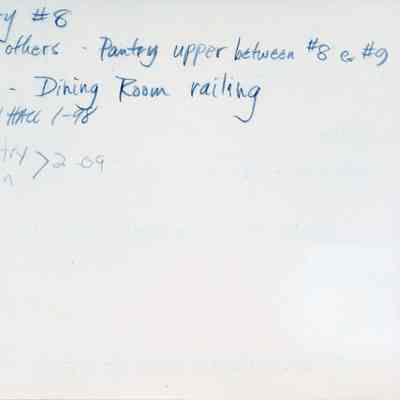 y #8
others - Pantry upper between #8 & #9
- Dining Room railing
HALL 1-98
try > 2-09
n